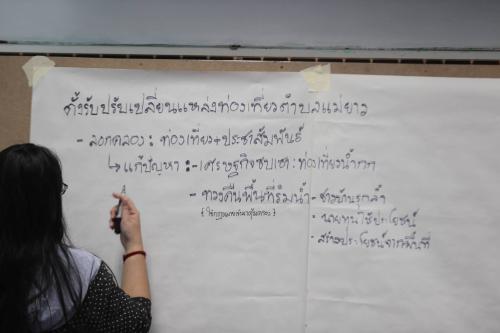 ตั้งรับปรับเปลี่ยนแหล่งท่องเที่ยวตำบลแม่ยาว
- ลอกคลอง : ท่องเที่ยว+ประชาสัมพันธ์
↳ แก้ปัญหา : - เศรษฐกิจซบเซา : ท่องเที่ยวน้ำกก
- ทวงคืนพื้นที่ริมน้ำ - ชาวบ้านรุกล้ำ
- นายทุนใช้ประโยชน์
- สร้างประโยชน์จากพื้นที่